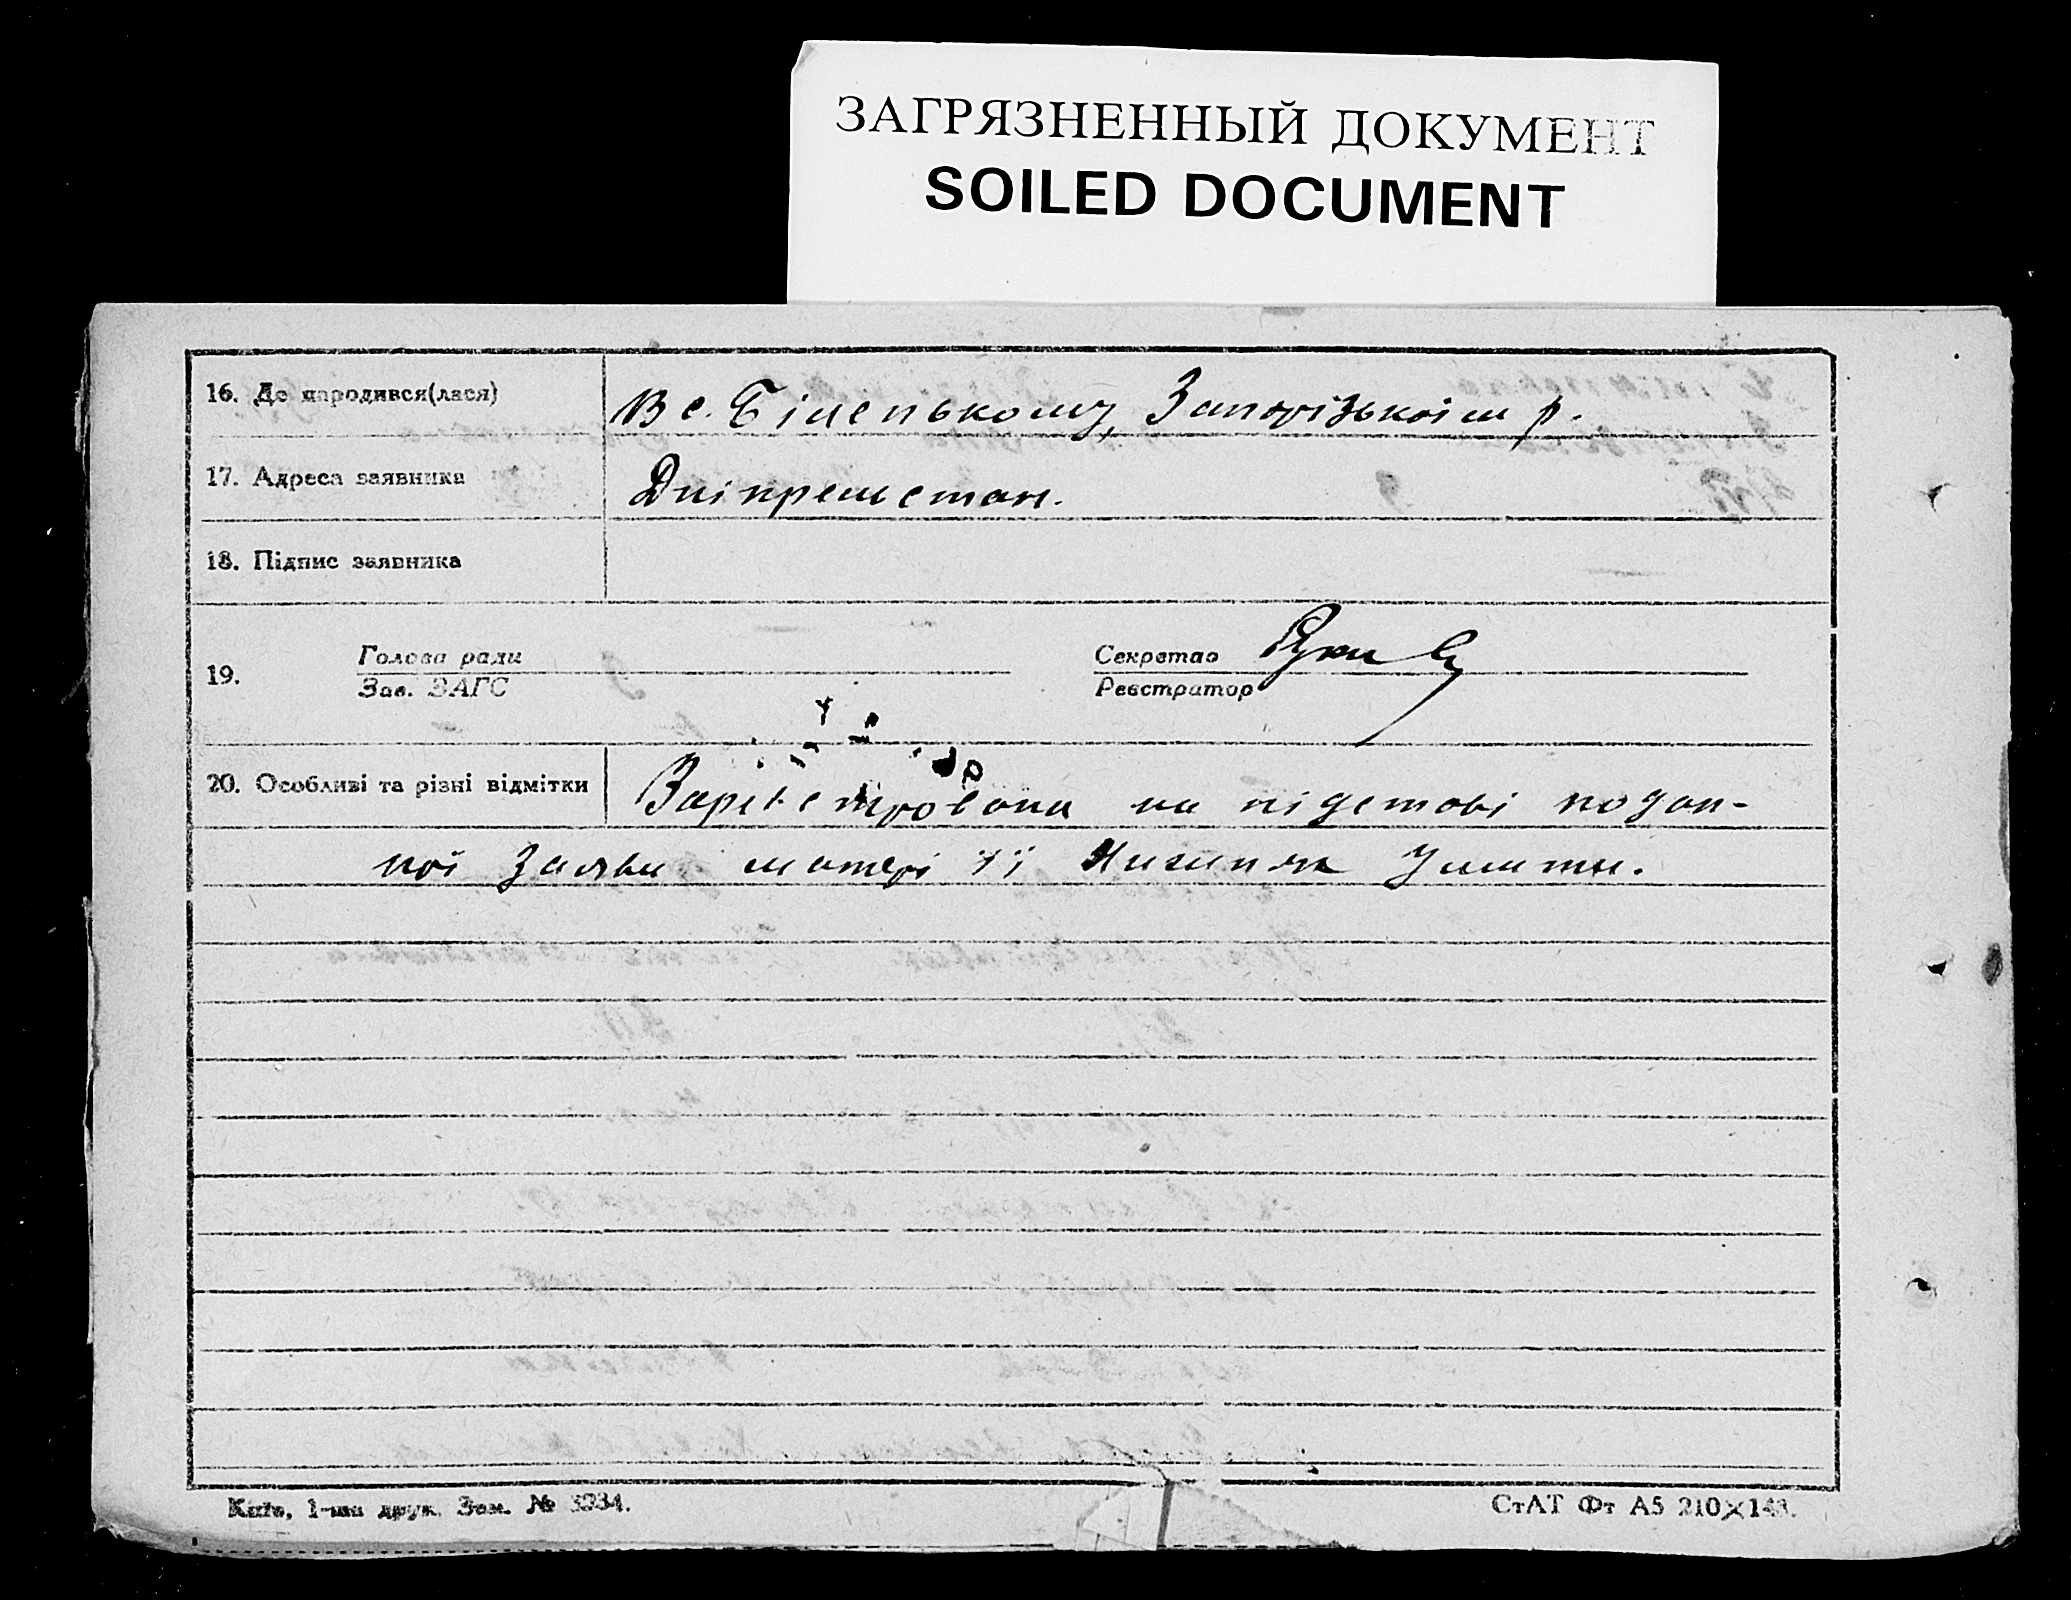 ЗАГРЯЗНЕННЫЙ ДОКУМЕНТ
SOILED DOCUMENT
16. Де народився(лася) В с. Біленькому, Запорізькім р.
17. Адреса заявника
18. Підпис заявника
19. Голова ради Секретар
Зав. ЗАГС Реєстратор
20. Особливі та різні відмітки Зарієстрована на підставі подан-
ної заяви матері її
Київ, 1-ша друк. Зам. № 3934.
СтАТ Фт А5 210×148.